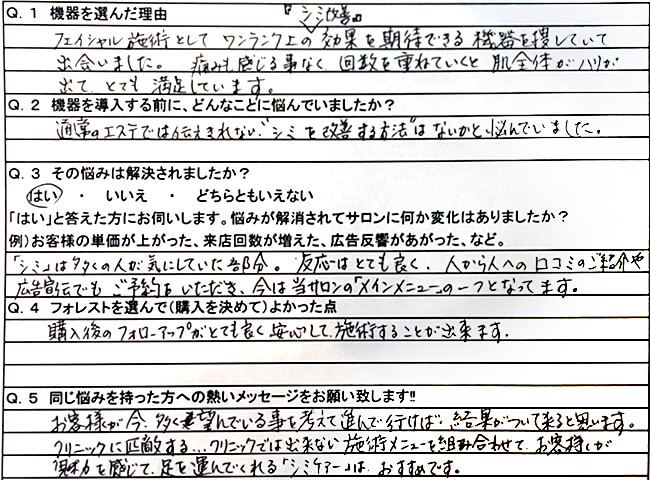 Q.1 機器を選んだ理由
『シミ改善』
フェイシャル施術として ワンランク上の 効果を期待できる 機器を捜していて
出会いました。 痛みも感じる事なく 回数を重ねていくと 肌全体が ハリが
出て、とても 満足しています。
Q.2 機器を導入する前に、どんなことに悩んでいましたか?
通常のエステでは伝えきれない"シミを改善する方法"はないかと悩んでいました。
Q.3 その悩みは解決されましたか?
はい ・ いいえ ・ どちらともいえない
「はい」と答えた方にお伺いします。悩みが解消されてサロンに何か変化はありましたか?
例)お客様の単価が上がった、来店回数が増えた、広告反響があがった、など。
「シミ」は多くの人が気にしていた部分。 反応はとても良く、人から人への口コミのご紹介や
広告宣伝でも ご予約をいただき、今は当サロンの「メインメニュー」の一つとなってます。
Q.4 フォレストを選んで(購入を決めて)よかった点
購入後のフォローアップがとても良く 安心して、施術することが出来ます。
Q.5 同じ悩みを持った方への熱いメッセージをお願い致します!!
お客様が今、多く希望んでいる事を考えて進んで行けば、結果がついて来ると思います。
クリニックに匹敵する...クリニックでは出来ない施術メニューを組み合わせて、お客様が
魅力を感じて、足を運んでくれる「シミケアー」は、おすすめです。